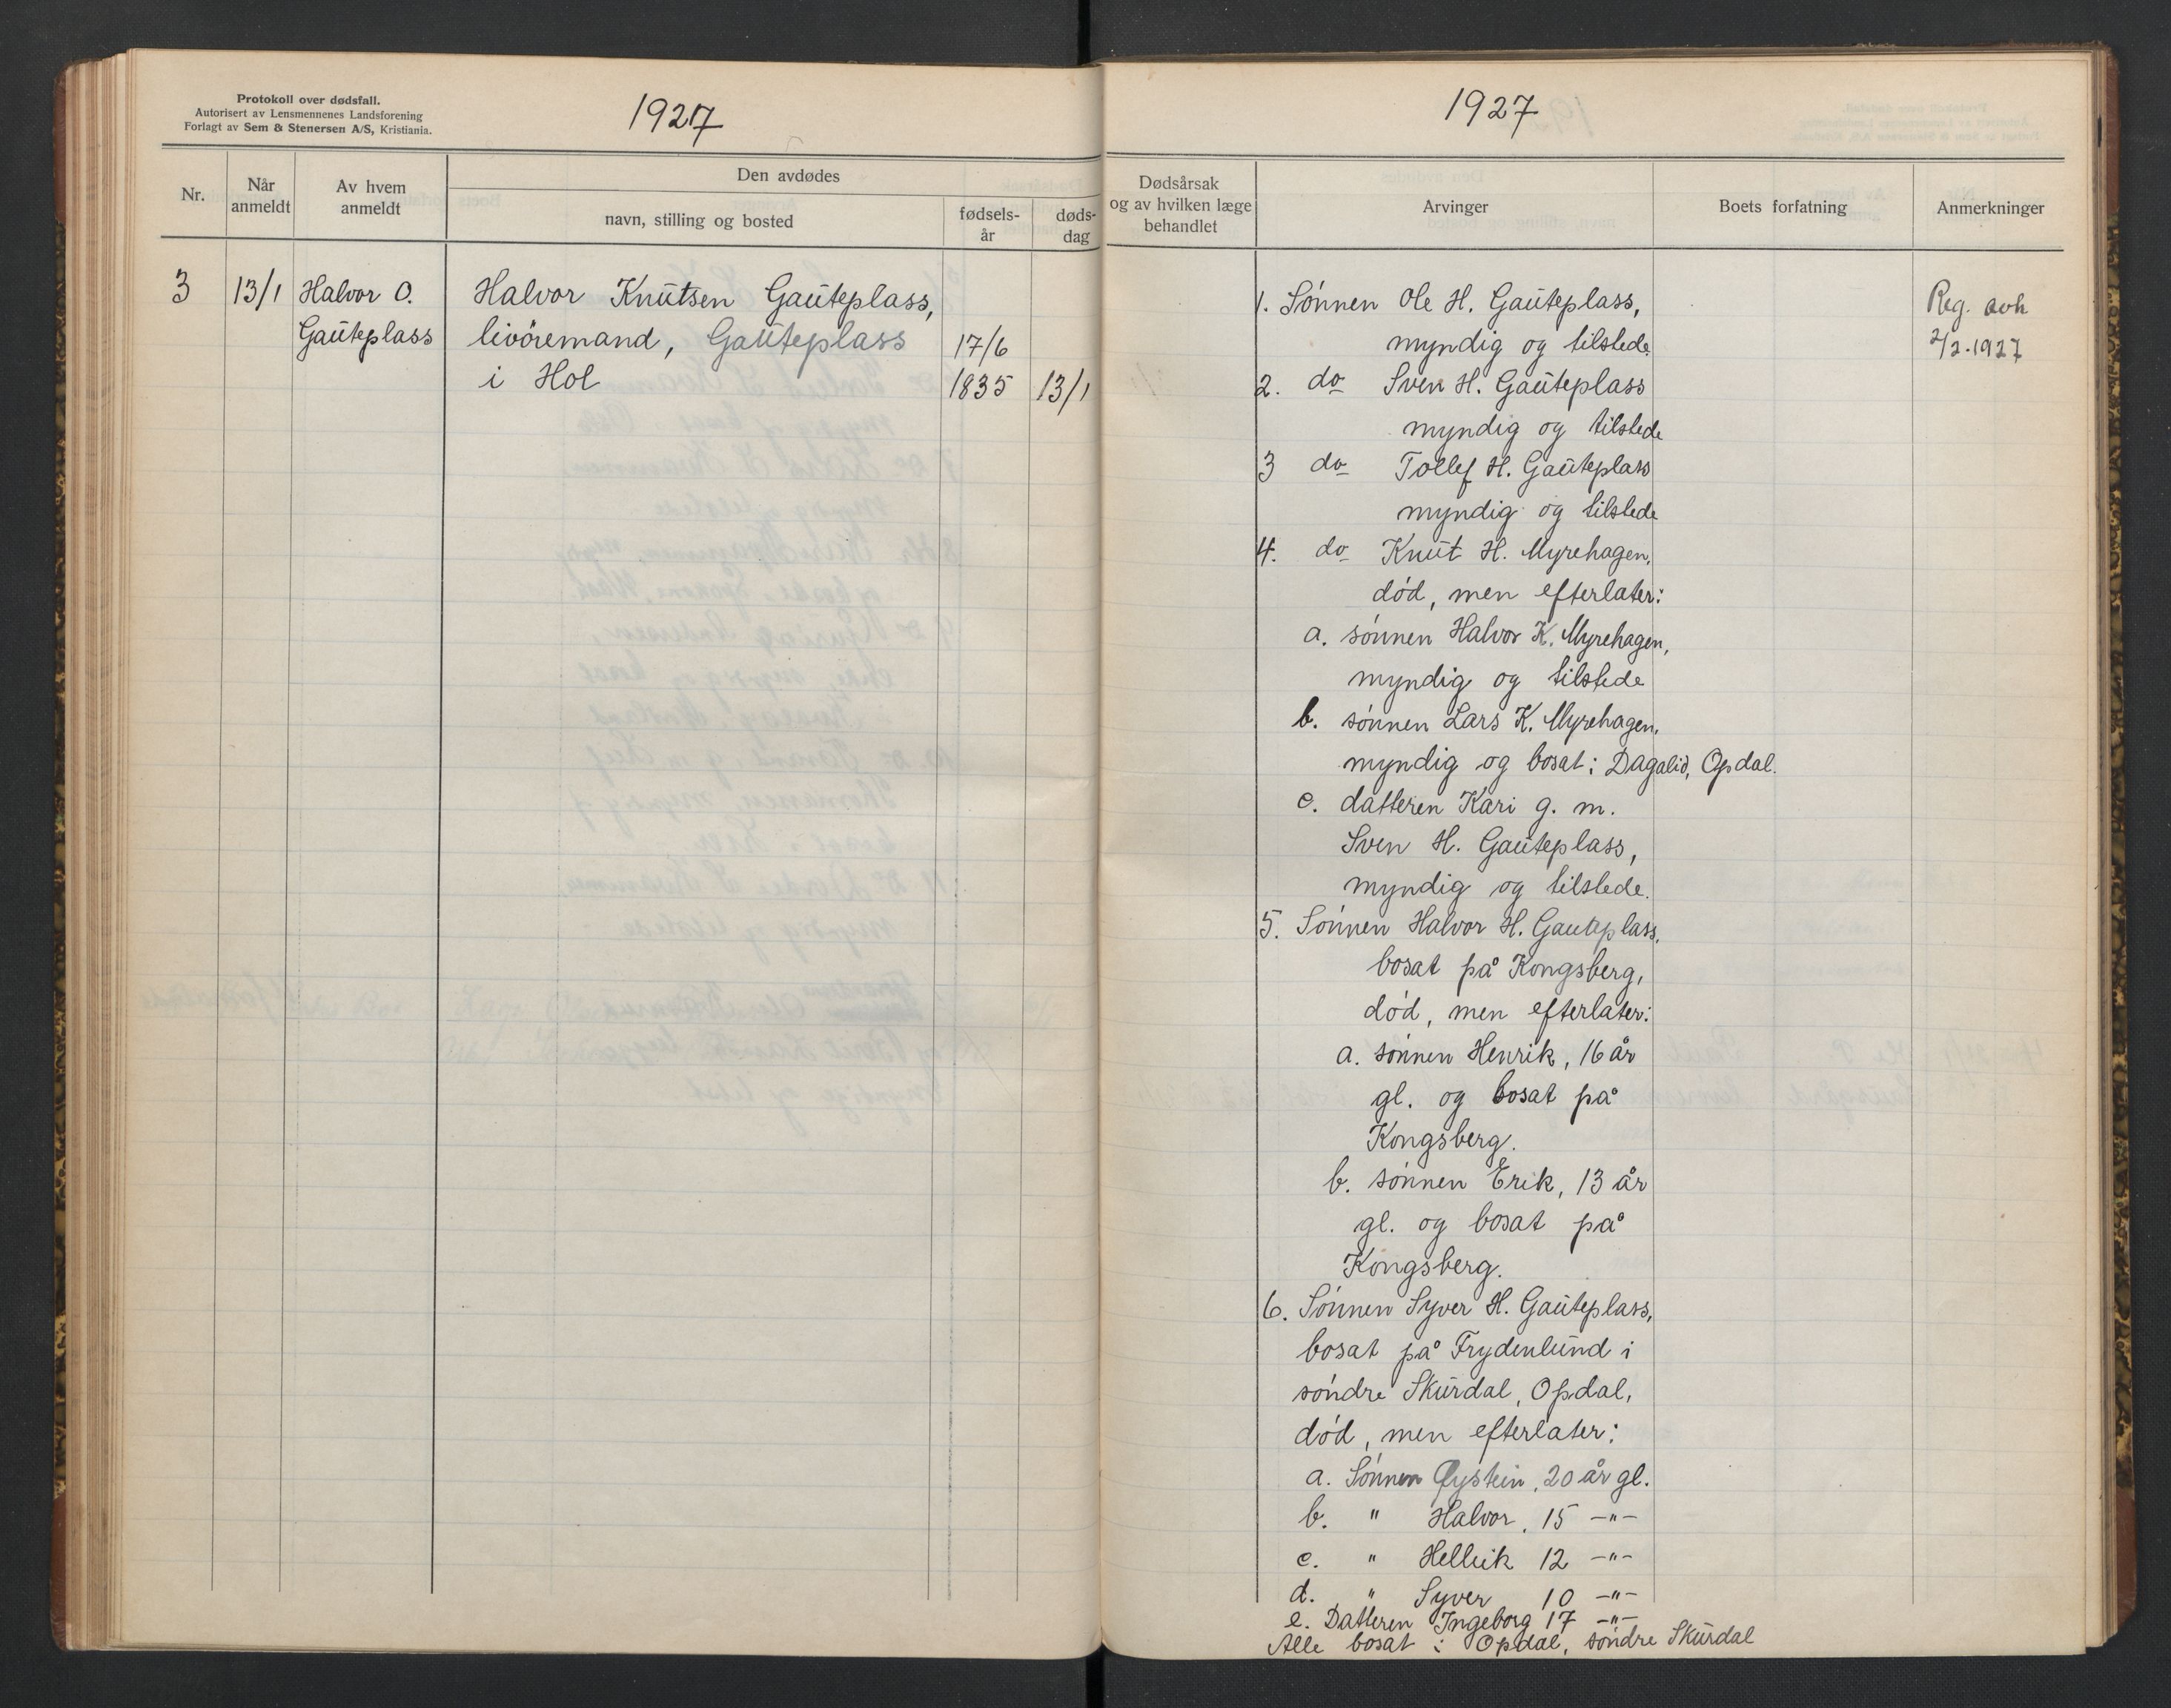 Protokoll over dødsfall.
Autorisert av Lensmennenes Landsforening
Forlagt av Sem & Stenersen A/S, Kristiania.
1927
Nr.
Når anmeldt
Av hvem anmeldt
Den avdødes
navn, stilling og bosted
fødsels-år
døds-dag
3
13/1
Halvor O.
Gauteplass
Halvor Knutsen Gauteplass,
livöremand, Gauteplass
i Hol
17/6
1835
13/1
1927
Dødsårsak
og av hvilken læge
behandlet
Arvinger
Boets forfatning
Anmerkninger
1. Sönnen Ole H. Gauteplass,
myndig og tilstede.
2. do Sven H. Gauteplass
myndig og tilstede
3 do Tollef H. Gauteplass
myndig og tilstede
4. do Knut H. Myrehagen,
död, men efterlater:
a. sönnen Halvor K. Myrehagen,
myndig og tilstede
b. sönnen Lars K. Myrehagen,
myndig og bosat i Dagalid, Opdal.
c. datteren Kari g. m.
Sven H. Gauteplass,
myndig og tilstede.
5. Sönnen Halvor H. Gauteplass,
bosat på Kongsberg,
död, men efterlater:
a. sönnen Henrik, 16 år
gl. og bosat på
Kongsberg.
b. sönnen Erik, 13 år
gl. og bosat på
Kongsberg.
6. Sönnen Syver H. Gauteplass,
bosat på Frydenlund i
söndre Skurdal, Opdal,
död, men efterlater:
a. Sönnen Øystein, 20 år gl.
b. " Halvor, 15 -"-
c. " Hellik 12 -"-
d. " Syver 10 -"-
e. Datteren Ingeborg 17 -"-
Alle bosat i Opdal, söndre Skurdal
Reg. avh
2/2.1927